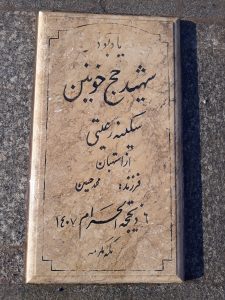 یادبود
شهید حج خونین
سکینه رعیتی
از استهبان
فرزند: محمدحسین
۶ ذیحجه الحرام ۱۴۰۷
مکه مکرمه